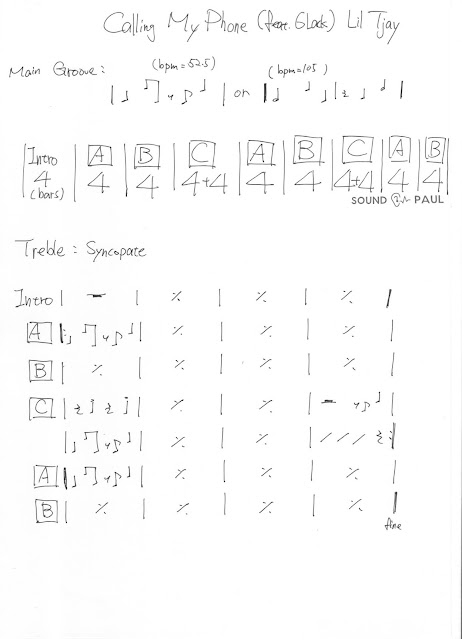 Calling My Phone (feat. 6lack) Lil Tjay
Main Groove: (bpm=52.5) or (bpm=105)
Intro A B C A B C A B
4 4 4 4+4 4 4 4+4 4 4
(bars)
SOUND PAUL
Treble: Syncopate
Intro
A
B
C
A
B
fine